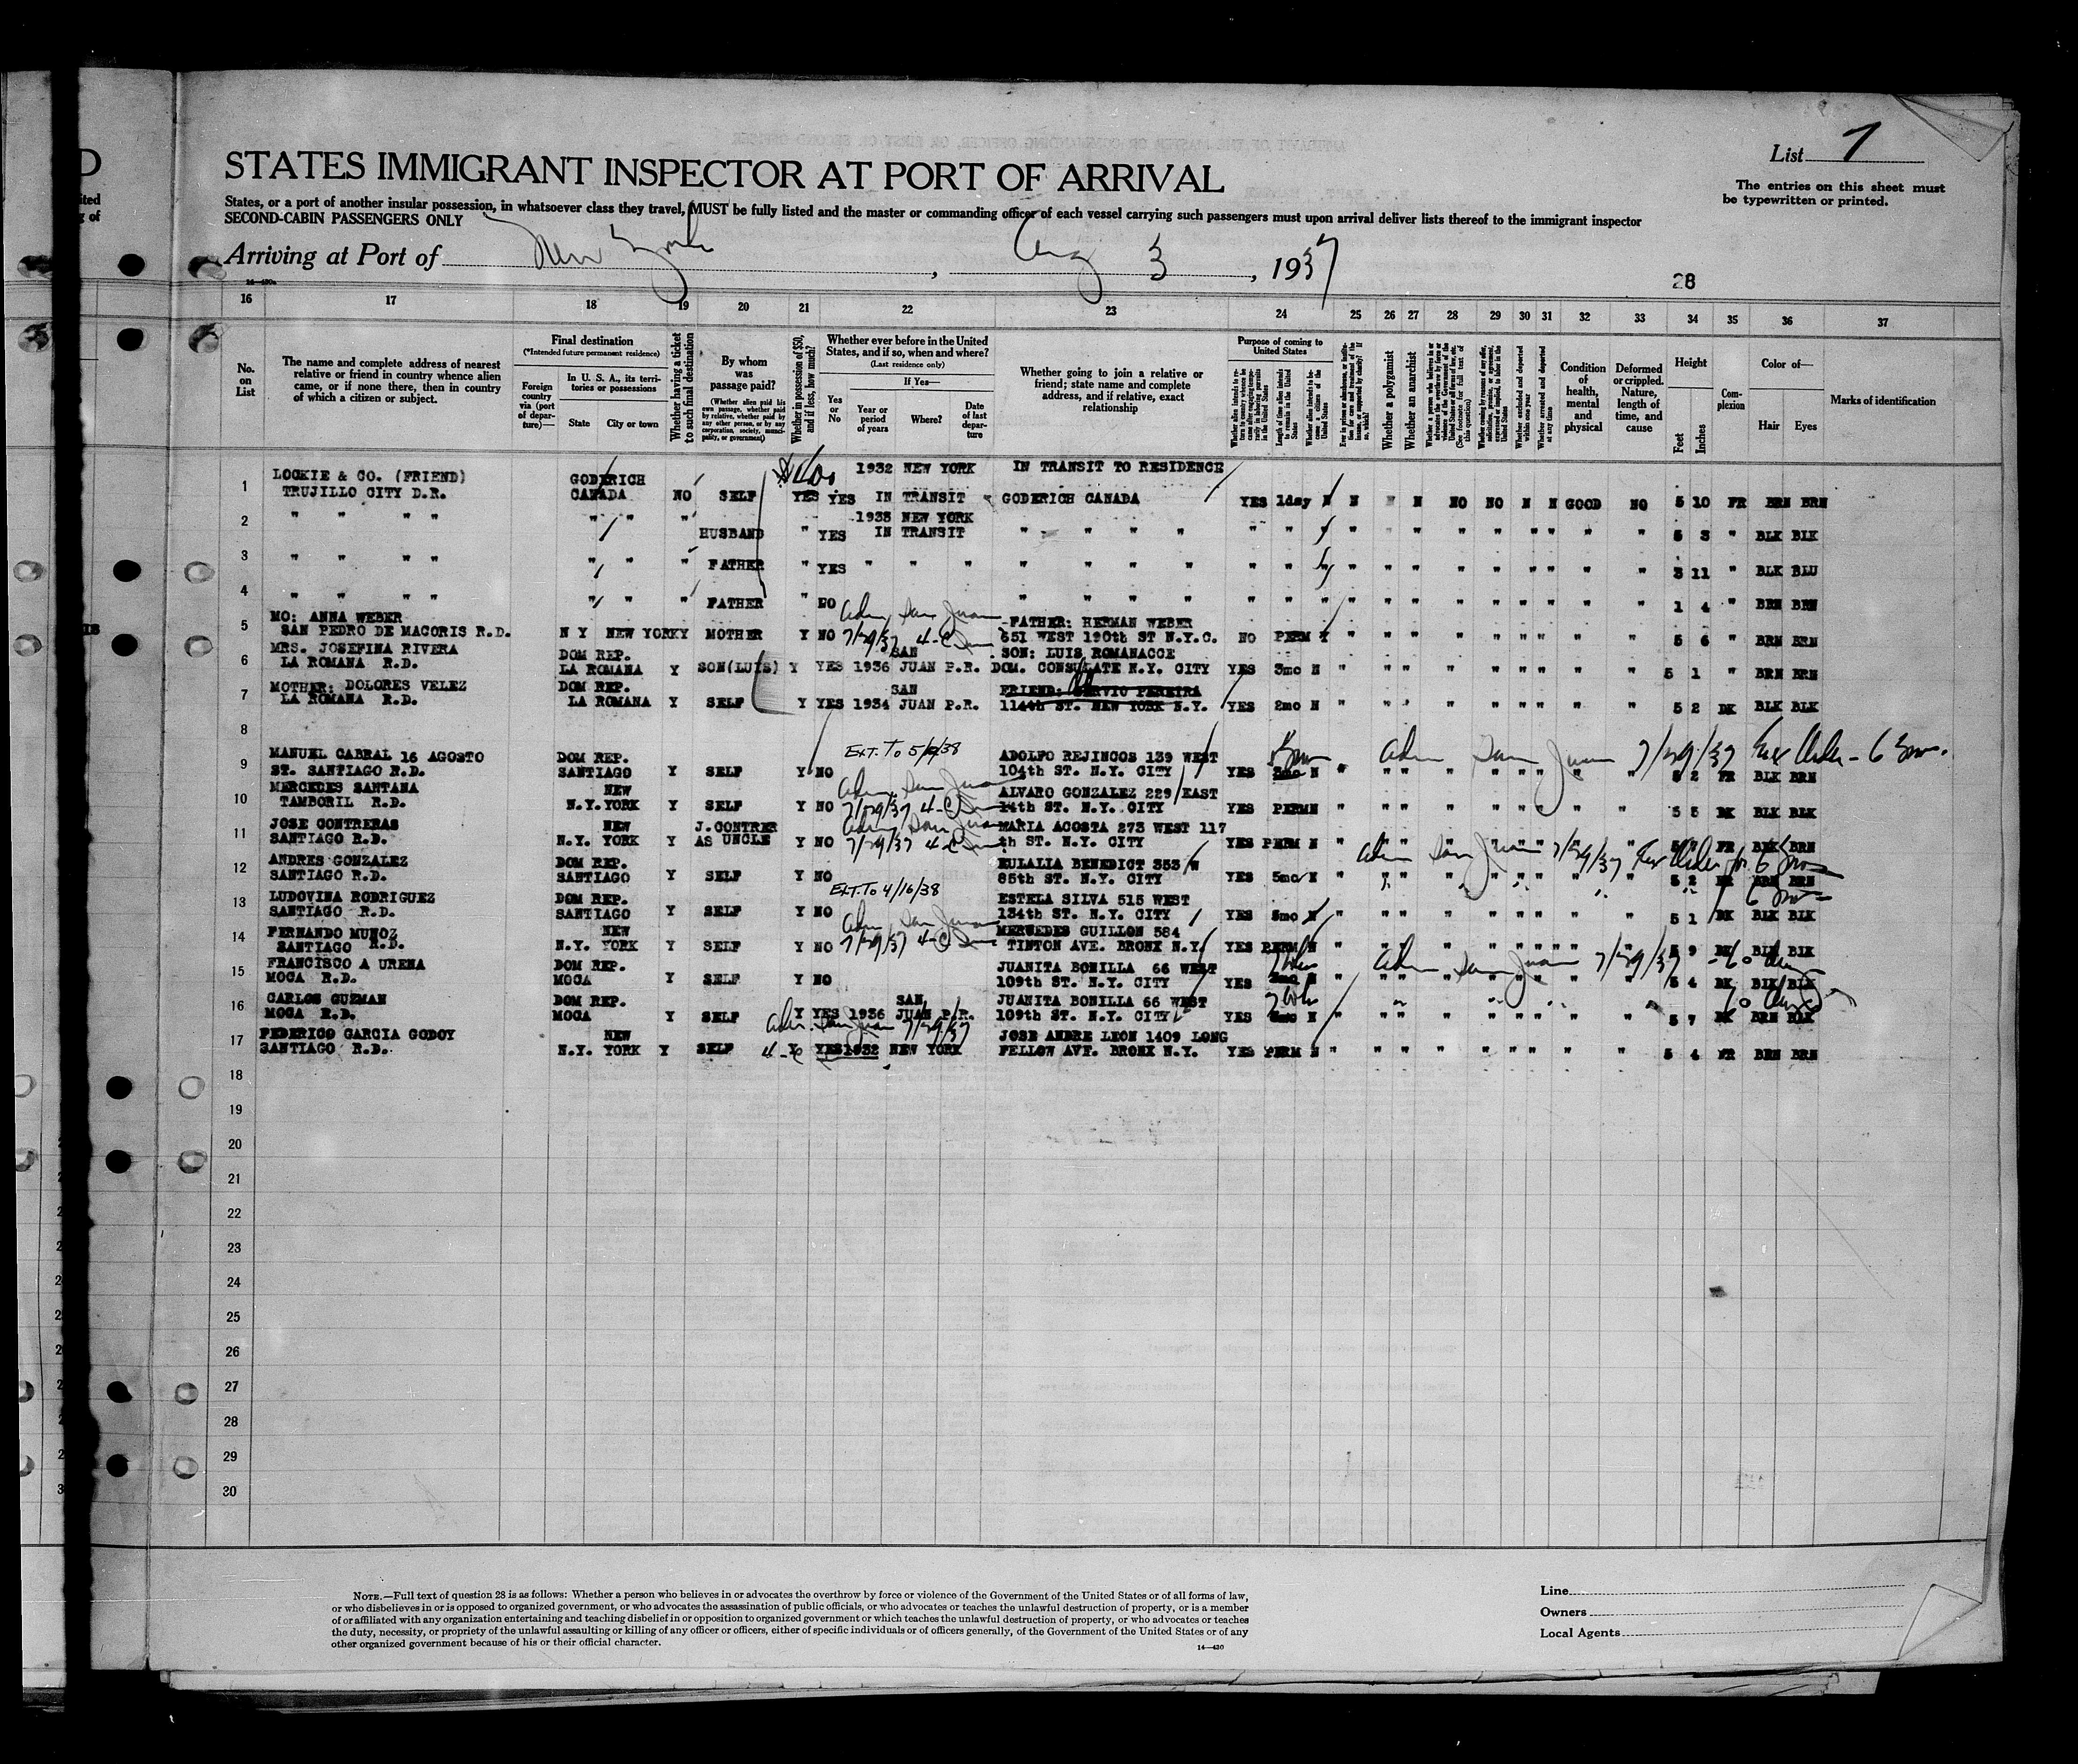 List 7
STATES IMMIGRANT INSPECTOR AT PORT OF ARRIVAL
The entries on this sheet must
be typewritten or printed.
States, or a port of another insular possession, in whatsoever class they travel, MUST be fully listed and the master or commanding officer of each vessel carrying such passengers must upon arrival deliver lists thereof to the immigrant inspector
SECOND-CABIN PASSENGERS ONLY
Arriving at Port of New York, Aug 3, 1937
28
16 17 18 19 20 21 22 23 24 25 26 27 28 29 30 31 32 33 34 35 36 37
No. on List
The name and complete address of nearest relative or friend in country whence alien came, or if none there, then in country of which a citizen or subject.
Final destination
(*Intended future permanent residence)
Foreign country via (port of departure)—
In U. S. A., its territories or possessions
State City or town
Whether having a ticket to such final destination
By whom was passage paid?
(Whether alien paid his own passage, whether paid by relative, whether paid by any other person, or by any corporation, society, municipality, or government)
Whether in possession of $50, and if less, how much?
Whether ever before in the United States, and if so, when and where?
(Last residence only)
If Yes—
Yes or No
Year or period of years
Where?
Date of last departure
Whether going to join a relative or friend; state name and complete address, and if relative, exact relationship
Purpose of coming to United States
Length of time alien intends to remain in the United States
Whether a polygamist
Whether an anarchist
Whether excluded and deported within one year
Whether arrested and deported at any time
Condition of health, mental and physical
Deformed or crippled. Nature, length of time, and cause
Height
Feet Inches
Complexion
Color of—
Hair Eyes
Marks of identification
LOCKIE & CO. (FRIEND) GODERICH $400 1932 NEW YORK IN TRANSIT TO RESIDENCE
1 TRUJILLO CITY D.R. CANADA NO SELF YES YES IN TRANSIT GODERICH CANADA YES 1day N N N N NO NO N N GOOD NO 5 10 FR BRN BRN
2 " " " " " " " 1935 NEW YORK
HUSBAND " YES IN TRANSIT " " " " " " " " " " " " " " " " 5 3 " BLK BLK
3 " " " " " " " FATHER " YES " " " " " " " " " " " " " " " " " " " 3 11 " BLK BLU
4 " " " " " " " FATHER " NO " " " " " " " " " " " " " " " " 1 4 " BRN BRN
MO: ANNA WEBER Adm San Juan FATHER: HERMAN WEBER
5 SAN PEDRO DE MACORIS R.D. N Y NEW YORK Y MOTHER Y NO 7/29/37 4-C 551 WEST 190th ST N.Y.C. NO PERM Y " " " " " " " " " " 5 6 " BRN BRN
MRS. JOSEFINA RIVERA DOM REP. SAN SON: LUIS ROMANACCE
6 LA ROMANA R.D. LA ROMANA Y SON(LUIS) Y YES 1936 JUAN P.R. DOM. CONSULATE N.Y. CITY YES 3mo N " " " " " " " " " " 5 1 " BRN BRN
MOTHER: DOLORES VELEZ DOM REP. SAN FRIEND: SERVIO PEREIRA
7 LA ROMANA R.D. LA ROMANA Y SELF Y YES 1934 JUAN P.R. 114th ST. NEW YORK N.Y. YES 2mo N " " " " " " " " " " 5 2 DK BLK BLK
8
MANUEL CABRAL 16 AGOSTO DOM REP. EXT. TO 5/ /38 ADOLFO REJINCOS 139 WEST Adm San Juan 7/29/37 6 mo.
9 ST. SANTIAGO R.D. SANTIAGO Y SELF Y NO 104th ST. N.Y. CITY YES N " " " " " " " " 5 2 FR BLK BRN
MERCEDES SANTANA NEW Adm San Juan ALVARO GONZALEZ 229 EAST
10 TAMBORIL R.D. N.Y. YORK Y SELF Y NO 7/29/37 4-C 14th ST. N.Y. CITY YES PERM N " " " " " " " " " " 5 5 DK BLK BLK
JOSE CONTRERAS NEW J. CONTRER Adm San Juan MARIA ACOSTA 273 WEST 117
11 SANTIAGO R.D. N.Y. YORK Y AS UNCLE Y NO 7/29/37 4-C th ST. N.Y. CITY YES PERM N " " " " " " " " 5 FR BLK BRN
ANDRES GONZALEZ DOM REP. EULALIA BENEDICT 353 W Adm San Juan 7/29/37 for 6 mos
12 SANTIAGO R.D. SANTIAGO Y SELF Y NO 85th ST. N.Y. CITY YES 5mo N " " " " " " " " 5 2 BRN BRN
LUDOVINA RODRIGUEZ DOM REP. EXT. TO 4/16/38 ESTELA SILVA 515 WEST 6 mos
13 SANTIAGO R.D. SANTIAGO Y SELF Y NO 134th ST. N.Y. CITY YES N " " " " " " " " " " 5 1 DK BLK BLK
FERNANDO MUNOZ NEW Adm San Juan MERCEDES GUILLON 584
14 SANTIAGO R.D. N.Y. YORK Y SELF Y NO 7/29/37 4-C TINTON AVE. BRONX N.Y. YES PERM N " " " " " " " " " " 5 9 DK BLK BLK
FRANCISCO A URENA DOM REP. JUANITA BONILLA 66 WEST Adm San Juan 7/29/37 60 days
15 MOCA R.D. MOCA Y SELF Y NO 109th ST. N.Y. CITY YES N " " " " " " " " 5 4 DK BLK BLK
CARLOS GUZMAN DOM REP. SAN JUANITA BONILLA 66 WEST
16 MOCA R.D. MOCA Y SELF Y YES 1936 JUAN P.R. 109th ST. N.Y. CITY YES N 5 7 DK BRN BLK
FEDERICO GARCIA GODOY NEW Adm. San Juan 7/29/37 JOSE ANDRE LEON 1409 LONG
17 SANTIAGO R.D. N.Y. YORK Y SELF 4-C Y YES 1932 NEW YORK FELLOW AVE. BRONX N.Y. YES PERM N " " " " " " " " " " 5 4 FR BRN BRN
18
19
20
21
22
23
24
25
26
27
28
29
30
NOTE.—Full text of question 28 is as follows: Whether a person who believes in or advocates the overthrow by force or violence of the Government of the United States or of all forms of law,
or who disbelieves in or is opposed to organized government, or who advocates the assassination of public officials, or who advocates or teaches the unlawful destruction of property, or is a member
of or affiliated with any organization entertaining and teaching disbelief in or opposition to organized government or which teaches the unlawful destruction of property, or who advocates or teaches
the duty, necessity, or propriety of the unlawful assaulting or killing of any officer or officers, either of specific individuals or of officers generally, of the Government of the United States or of any
other organized government because of his or their official character.
14—430
Line
Owners
Local Agents